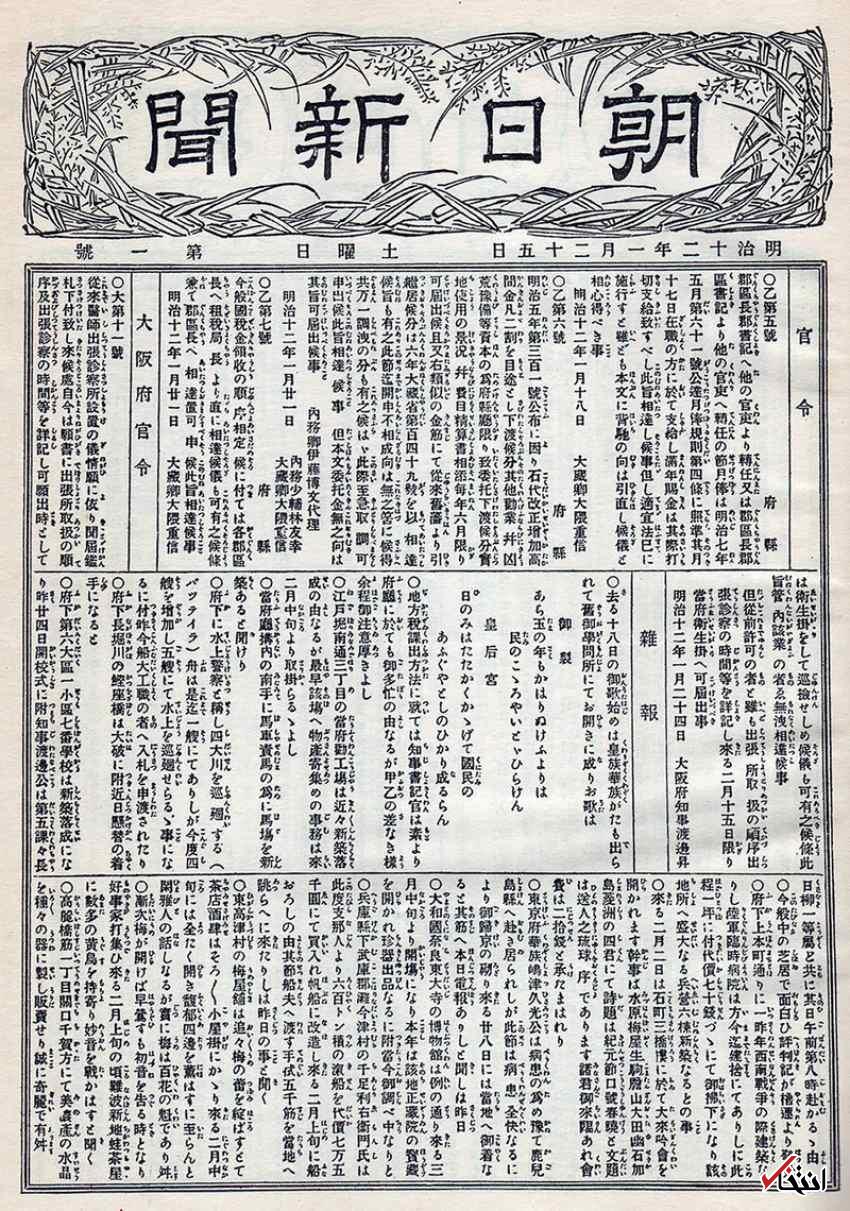 朝日新聞
明治十二年一月二十五日　土曜日　第一號
官令
○乙第五號　府縣
郡區長郡書記ヘ他の官吏より轉任又は郡區長郡
區書記より他の官吏ヘ轉任の節月俸は明治七年
五月第六十一號公達月俸規則第四條に照準其月
十七日在職の方に於て支給し滿年賜金は其際打
切支給致すべし此旨相達し候事但し適宜法已に
施行すと雖ども本文に背馳の向は引直し候儀と
相心得べき事
明治十二年一月十八日　大藏卿大隈重信
○乙第六號　府縣
明治五年第三百一號公布に因り石代改正增加高
間金凡二割を目途とし下渡候分其他勸業幷凶
荒豫備等資本の爲府縣廳限り致委托下渡候分實
地使用の景況幷費目精算書相添每年六月限り
可届出且又右類似の金筋にて從來舊藩より引
繼居候分は六年大藏省第百四十九號を以相達
候旨も有之此節迄開申不相成向は無之筈に候得
共万一調洩の分も有之候はゞ此際至急取調可
申出候此旨相達候事　但本文委托金無之向は
其旨可届出候事　內務卿伊藤博文代理
明治十二年一月廿一日　內務少輔林友幸
大藏卿大隈重信
○乙第七號　府縣
今般國稅金領收の順序相定候に付ては各郡區
長へ租稅局長より直に相達候儀も可有之候條
兼て郡區長へ相達置可申候此旨相達候事
明治十二年一月廿一日　大藏卿大隈重信
大阪府官令
○大第十一號
從來醫師出張診察所設置の儀情願に依り聞屆鑑
札下付致し來候處自今は願書に出張所取扱の順
序及出張診察の時間等を詳記し可願出時として
は衛生掛をして巡撿せしめ候儀も可有之候條此
旨管內該業の者ゑ無洩相達候事
但從前許可の者と雖も出張所取扱の順序出
張診察の時間等を詳記し來る二月十五日限り
當府衛生掛へ可屆出事
明治十二年一月二十四日　大阪府知事渡邊昇
雜報
○去る十八日の御歌始めは皇族華族がたも出ら
れて舊御學問所にてお開きに成りお歌は
御製
あら玉の年もかはりぬけふよりは
民のこゝろやいとゞひらけん
皇后宮
日のみはたたかくかゝげて國民の
あふぐやとしのひかり成るらん
○地方稅課出方法に就ては知事書記官は素より
府廳に於ても御多忙の由なるが甲乙の差なき樣
余程御注意厚きよし
○江戸堀南通三丁目の當府勸工塲は近々新築落
成の由なるが最早該塲へ物產寄集めの事務は來
二月中旬より取掛らるゝよし
○當府廳搆內の南手に馬車賣馬の爲に馬塲を新
築あると聞けり
○府下に水上警察と稱し四大川を巡廻する（
バツテイラ）舟は是迄一艘にてありしが今度四
艘を增加し五艘にて水上を巡廻せらるゝ事にな
るに付昨今船大工職の者へ入札を申渡されたり
○府下長堀川の鰹座橋は大破に附近日懸替の着
手になると
○府下第六大區一小區七番學校は新築落成にな
り昨廿四日開校式に附知事渡邊公は第五課々長
日柳一等屬と共に其日午前第八時赴かる由
○府下上本町通りに一昨年西南戰爭の際建築な
りし陸軍臨時病院は方今迄建捨にてありしに此
程一坪に付代價七十錢づゝにて御拂下になり該
地所へ盛大なる兵營六棟新築なるとの事
○來る二月二日は石町三橋樓に於て大來吟會を
開かれます幹事ば水原梅屋生駒膽山大田幽石加
島菱洲の四君にて詩題は紀元節口號春曉と文題
は送人之琉球序であります諸君御來陽あれ會
費は二拾錢と承たまはれり
○東京府華族嶋津久光公は病患の爲め豫て鹿兒
島縣へ赴き居られしが此節は病患全快なるに
より御歸京の砌り來る廿八日には當地へ御着な
ると其筋へ本日電報ありしと聞しは昨日
○大和國奈良東大寺の博物舘は例の通り來る三
月中旬より開塲になり本年は該地正藏院の寳藏
を開かれ珍器出品なるに附當今御調べ中なりと
○兵庫縣下武庫郡灘今津村の千足利右衛門氏は
此度支那人より六百トン積の家船を代價七万五
千圓にて買入れ帆船に改造し來る二月上旬に船
おろしの由其節船夫へ渡す手拭五千筋を當地へ
誂らへに來たりしは昨日の事と聞く
○東高津村の梅屋舗は追々梅の蕾を綻ばすとて
茶店酒肆はそろ〱小屋掛にかゝり來る二月中
旬には全たく開き馥郁四邊を薰はすに至らんと
閑雅人の話しなるが實に梅は百花の魁であり升
○漸次梅が開けば早鶯も初音を告る時となり
好事家打集ひ來る二月上旬の頃難波新地蛙茶屋
に數多の黃鳥を持寄り妙音を戰かはすと聞く
○高麗橋筋一丁目關口千賀方にて美濃產の水晶
を種々の器に製し販賣せり誠に奇麗で有升
انتخاب